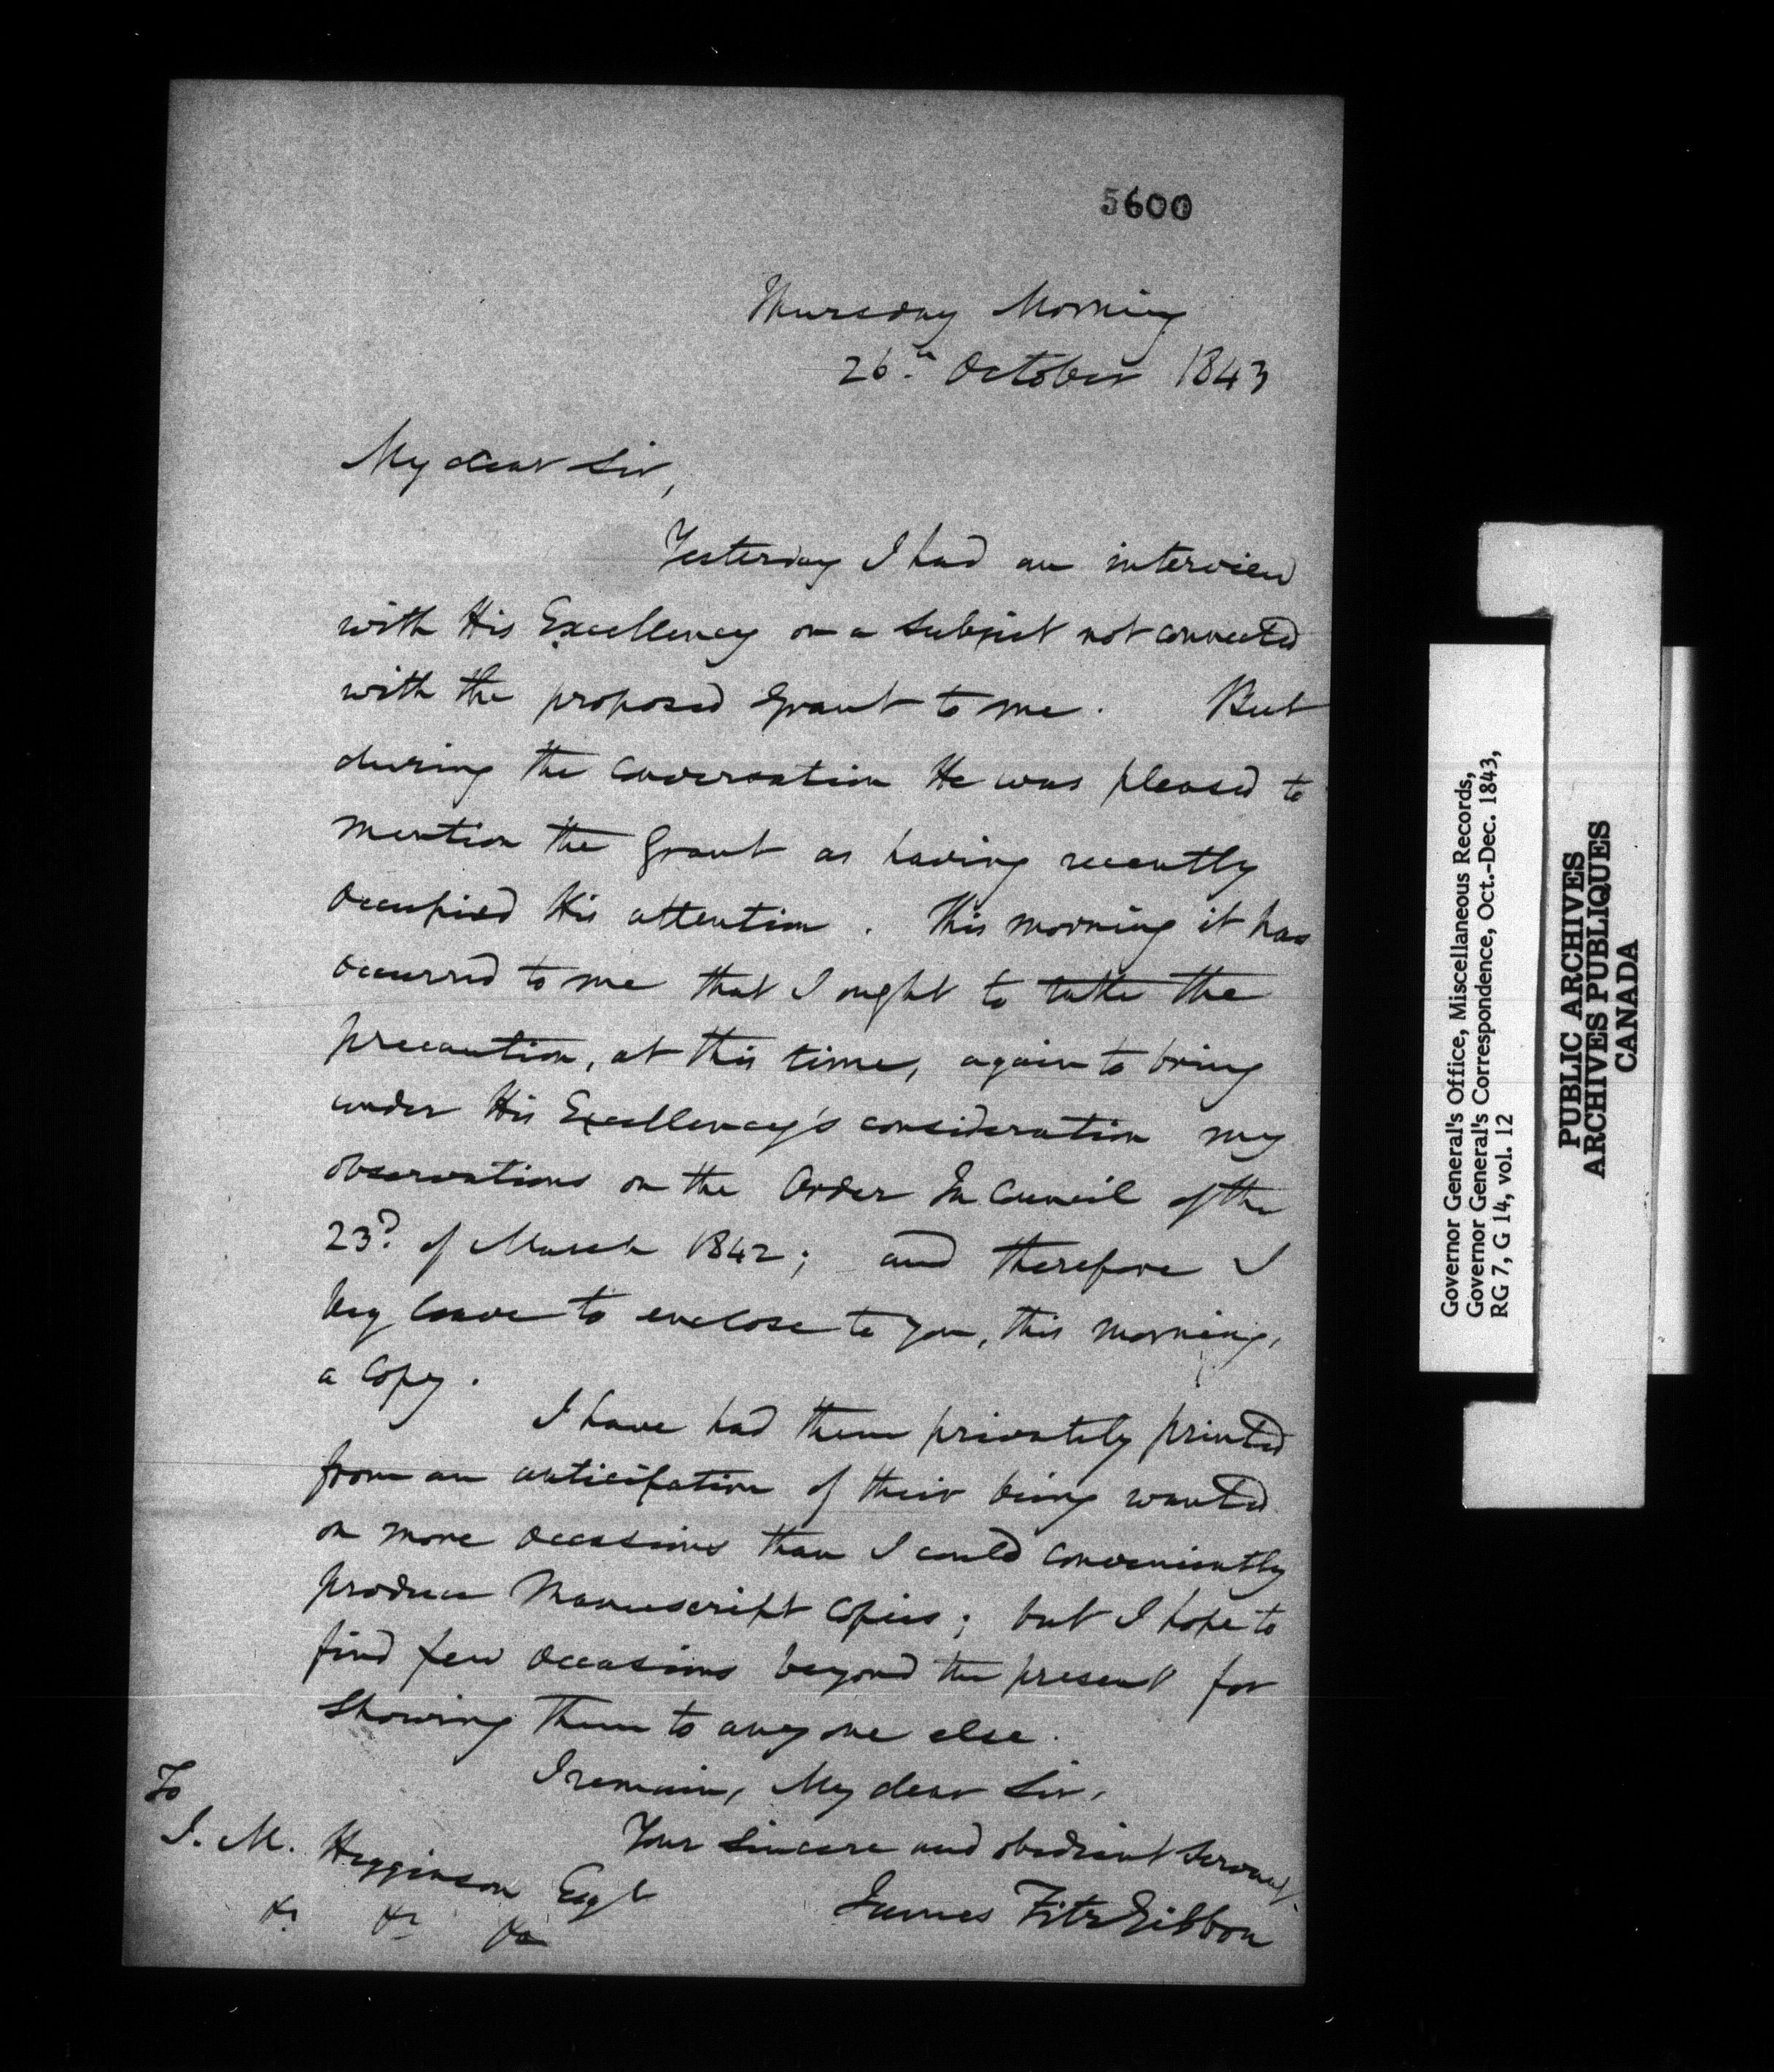 5600
Thursday Morning
26th October 1843
My dear Sir,
Yesterday I had an interview
with His Excellency on a subject not connected
with the proposed Grant to me. But
during the conversation He was pleased to
mention the Grant as having recently
occupied His attention. This morning it has
occurred to me that I ought to take the
precaution, at this time, again to bring
under His Excellency's consideration my
observations on the Order In Council of the
23d of March 1842; and therefore I
beg leave to enclose to you, this morning,
a Copy.
I have had them privately printed
from an anticipation of their being wanted
on more occasions than I could conveniently
produce Manuscript Copies; but I hope to
find few occasions beyond the present for
showing them to any one else.
I remain, My dear Sir,
Your sincere and obedient Servant.
James FitzGibbon
To
J. M. Higginson Esqr
&c &c &c
Governor General's Office, Miscellaneous Records,
Governor General's Correspondence, Oct.-Dec. 1843,
RG 7, G 14, vol. 12
PUBLIC ARCHIVES
ARCHIVES PUBLIQUES
CANADA